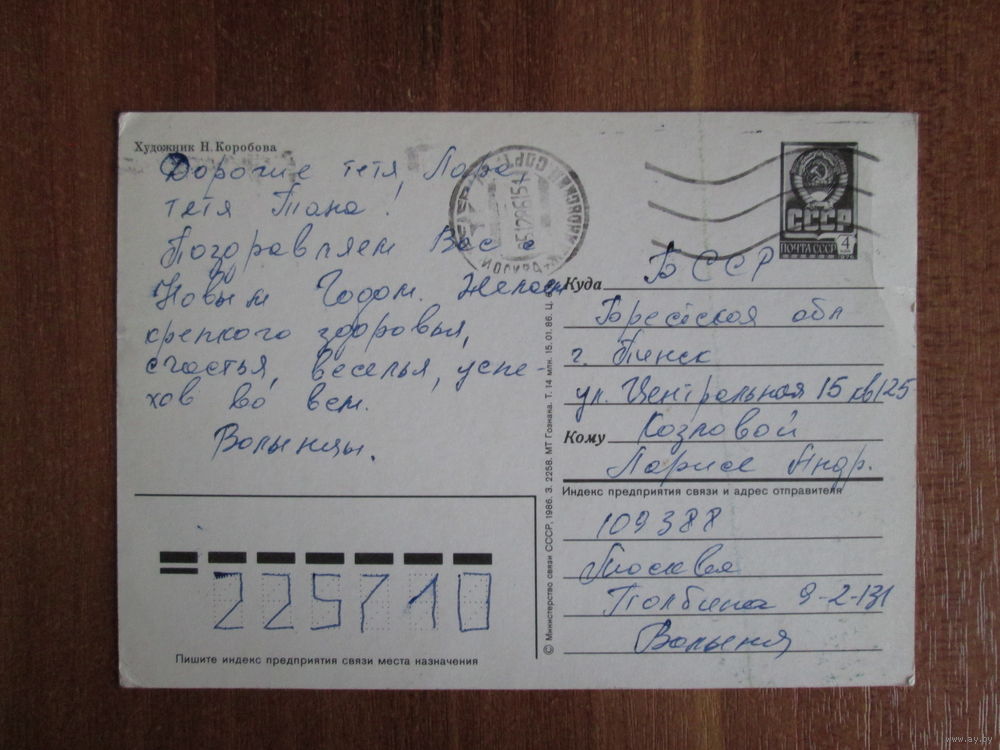 Художник Н. Коробова
Дорогие тетя Лара,
тетя Тана!
Поздравляем Вас с
Новым Годом. Желаем
крепкого здоровья,
счастья, веселья, успе-
хов во всем.
Волынцы.
СССР
ПОЧТА СССР 4
Куда БССР
Брестская обл
г. Пинск
ул. Центральная 15 кв 125
Кому Козловой
Ларисе Андр.
Индекс предприятия связи и адрес отправителя
109388
Москва
Полбина 9-2-131
225710
Пишите индекс предприятия связи места назначения
© Министерство связи СССР, 1986. З. 2258. МТ Гознака. Т. 14 млн. 15.01.86. Ц.
www.ay.by